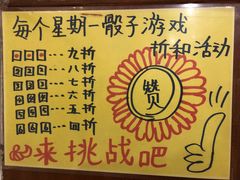 每个星期一骰子游戏
折和活动
---九折
---八折
---七折
---六折
---五折
---四折
赞
来挑战吧